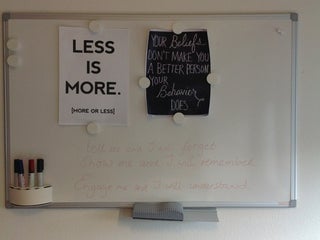 LESS
IS
MORE.
[MORE OR LESS]
YOUR Beliefs
DON'T MAKE YOU
A BETTER PERSON
YOUR
Behavior
DOES
Tell me and I will forget
Show me and I will remember
Engage me and I will understand